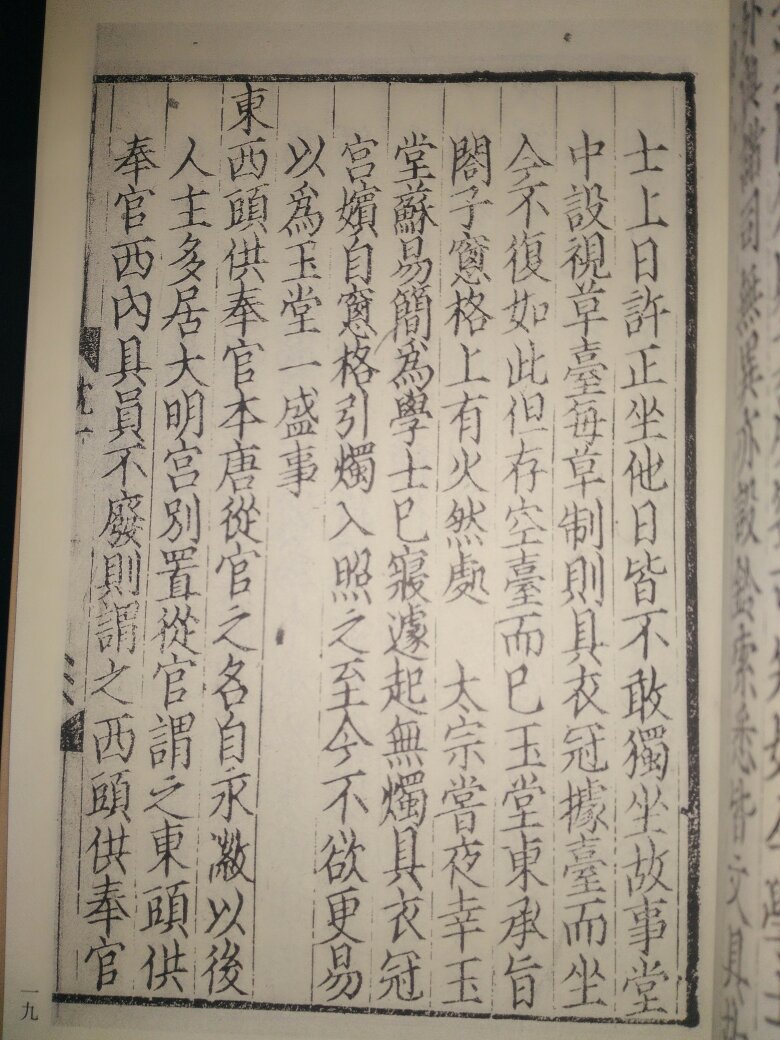 士上日許正坐他日皆不敢獨坐故事堂
中設視草臺每草制則具衣冠據臺而坐
今不復如此但存空臺而已玉堂東承旨
閤子窻格上有火然處　太宗嘗夜幸玉
堂蘇易簡爲學士已寢遽起無燭具衣冠
宮嬪自窻格引燭入照之至今不欲更易
以爲玉堂一盛事
東西頭供奉官本唐從官之名自永徽以後
人主多居大明宫別置從官謂之東頭供
奉官西內具員不廢則謂之西頭供奉官
一九